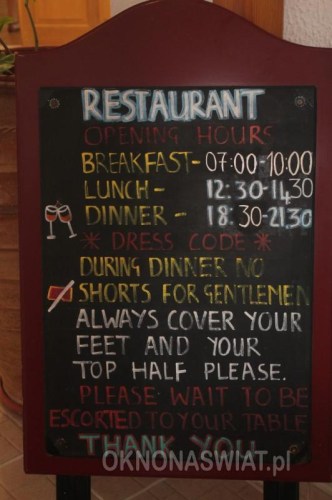 RESTAURANT
OPENING HOURS
BREAKFAST - 07:00-10:00
LUNCH - 12:30-14.30
DINNER - 18:30-21.30
* DRESS CODE *
DURING DINNER NO
SHORTS FOR GENTLEMEN
ALWAYS COVER YOUR
FEET AND YOUR
TOP HALF PLEASE.
PLEASE WAIT TO BE
ESCORTED TO YOUR TABLE
THANK YOU
OKNONASWIAT.pl